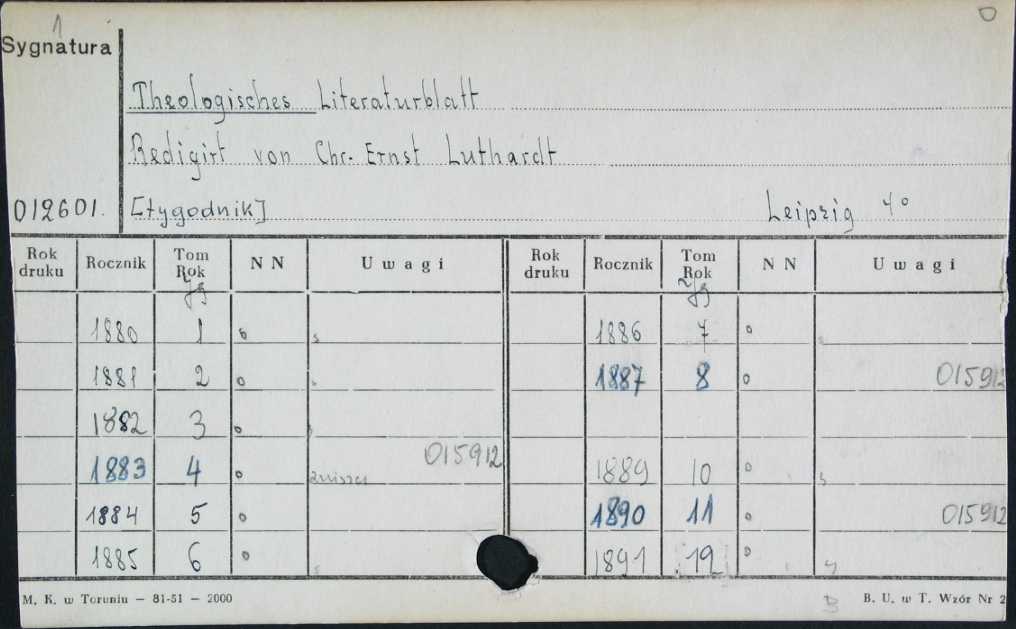 1
Sygnatura
Theologisches Literaturblatt
Redigirt von Chr. Ernst Luthardt
012601. [tygodnik] Leipzig 4°
Rok druku Rocznik Tom Rok NN Uwagi Rok druku Rocznik Tom Rok NN Uwagi
Jg Jg
1880 1 o 1886 7 o
1881 2 o 1887 8 o 015912
1882 3 o
1883 4 o 015912 1889 10 o
1884 5 o 1890 11 o 015912
1885 6 o 1891 12 o
M. K. w Toruniu — 81-51 — 2000 B. U. w T. Wzór Nr 2